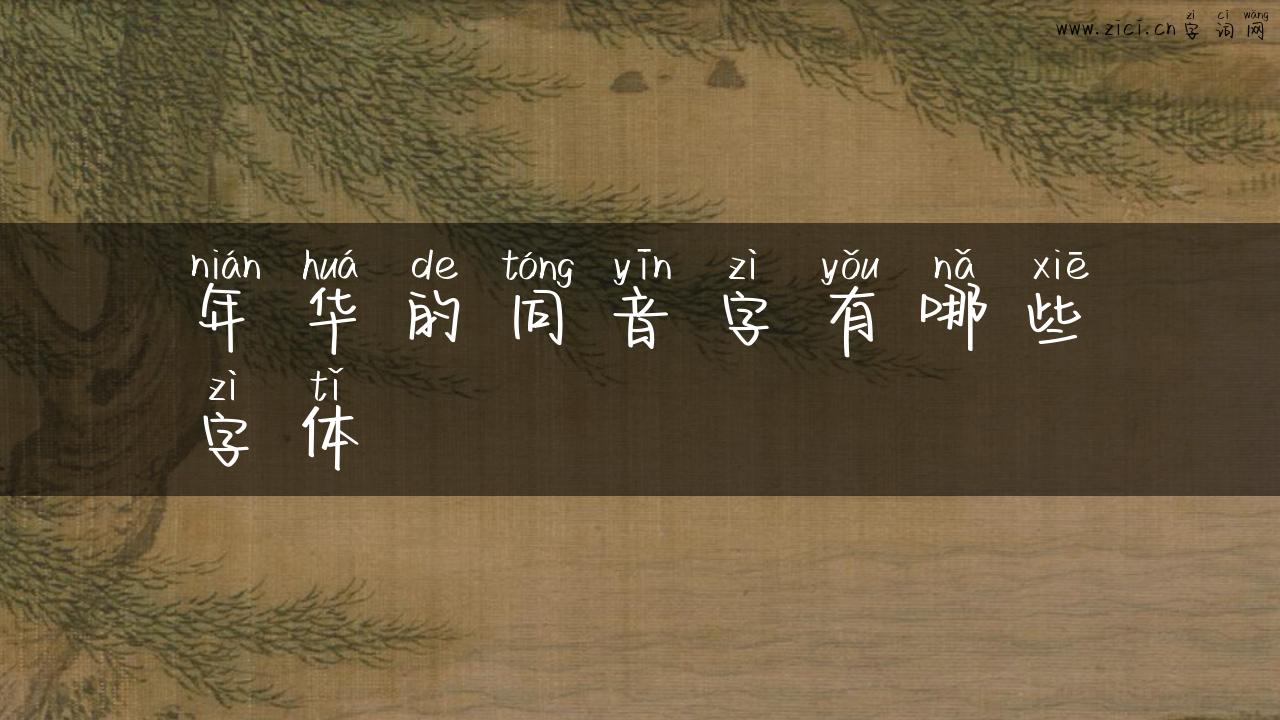 zì cí wǎng
www.zici.cn 字词网
nián huá de tóng yīn zì yǒu nǎ xiē
年华的同音字有哪些
zì tǐ
字体